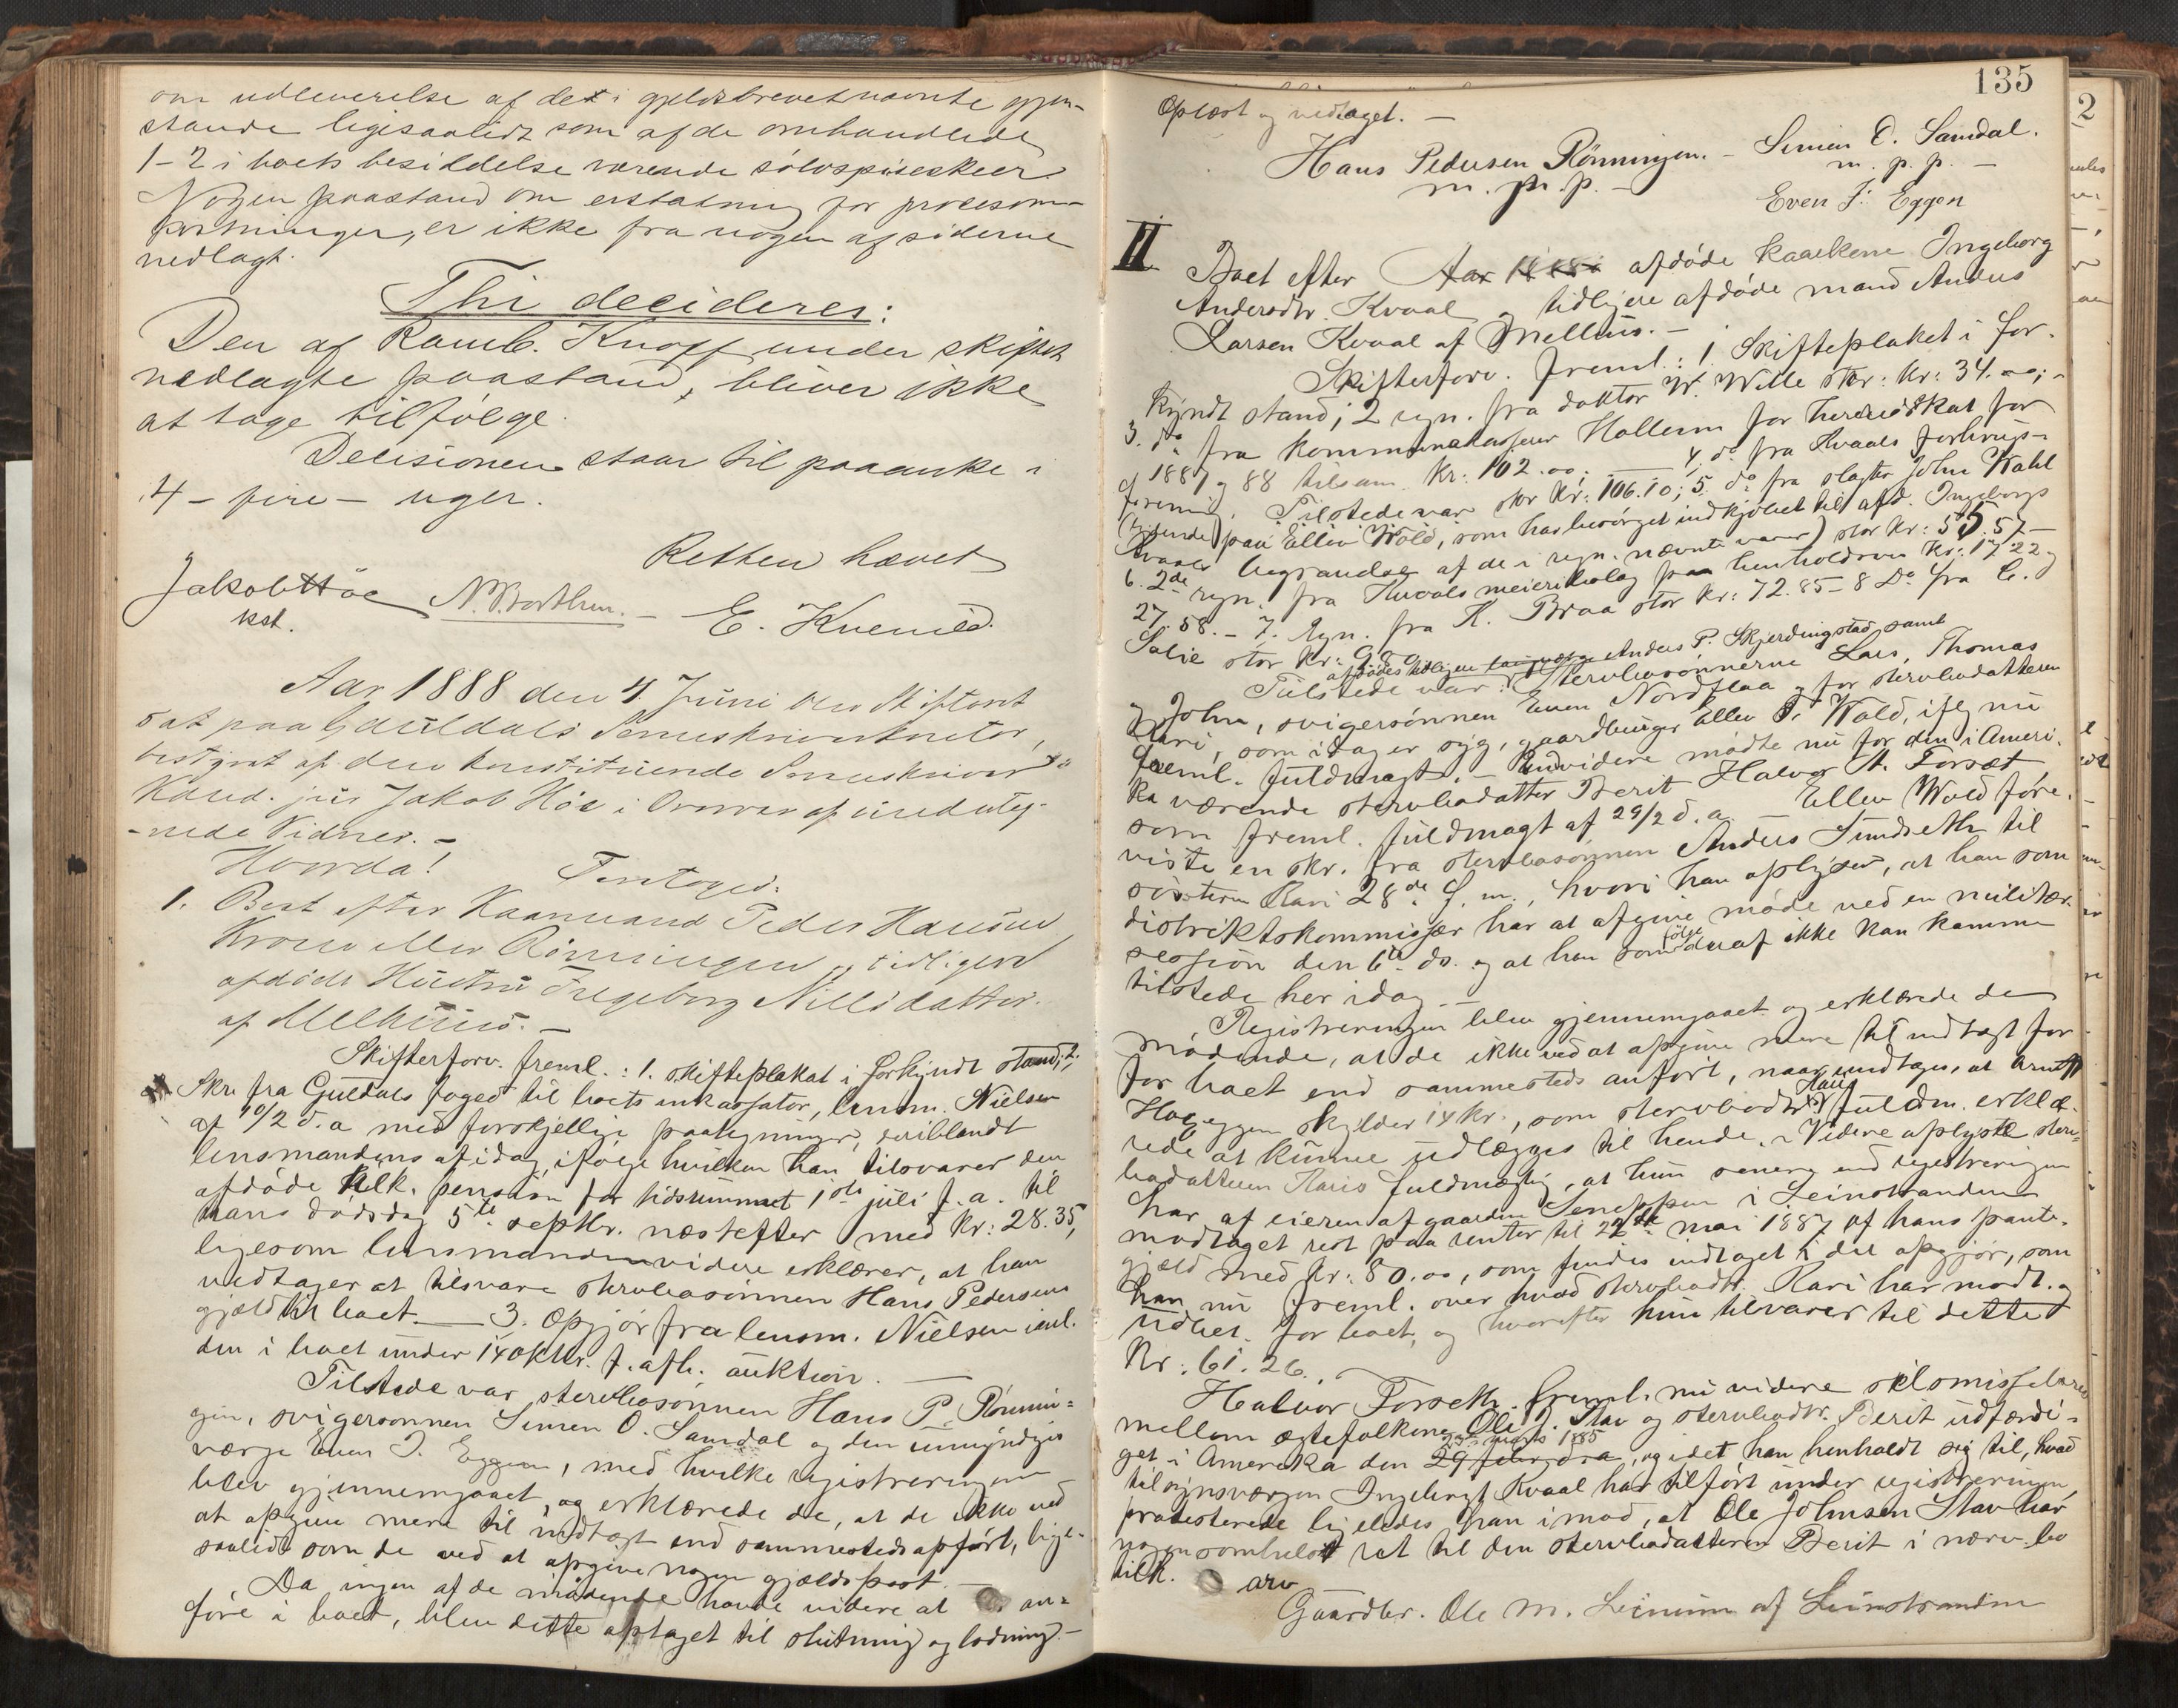 om udleverelse af det i gjeldsbrevet nævnte gjen-
stande ligesaalidt som af de omhandlede
1-2 i boets besiddelse værende sølvspiseskeer
Nogen paastand om erstatning for procesom-
kostninger, er ikke fra nogen af siderne
nedlagt.
Thi decideres:
Den af Knoff under skiftet
nedlagte paastand, bliver ikke
at tage tilfølge.
Decisionen staar til paaanke i
4 - fire - uger.
Retten hævet
Jakob Høe
kst.
E. Kvenild.
Aar 1888 den 4 Juni blev Skifteret
sat paa Guldals Sorenskriverkontor,
bestyret af den konstituerede Sorenskriver
Kand. jur Jakob Høe i Overvær af undeteg-
nede Vidner. -
Hvorda! Foretoges:
1. Boet efter Kaarmand Peder Hansen
Krogen eller Rønningen og tidligere
afdøde Hustru Ingeborg Nilsdatter
af Melhuus. -
Skifteforv. freml.: 1. skifteplakat i forkyndt stand; 2.
Skr. fra Guldals foged til boets inkassator, lensm. Nielsen
af 10/2 d. a med forskjellige paategninger, deriblandt
lensmandens af idag, ifølge hvilken han tilsvarer den
afdøde tilk. pension for tidsrummet 1ste juli f. a. til
hans dødsdag 5te septbr. næstefter med Kr: 28.35,
ligesom lensmanden videre erklærer, at han
vedtager at tilsvare stervbosønnen Hans Pedersens
gjæld til boet. — 3. Opgjør fra lensm. Nielsen
den i boet under 14 oktbr. f. a. afh. auktion. —
Tilstede var stervbosønnen Hans P. Rønnin=
gen, svigersønnen Simen O. Samdal og den umyndiges
værge Even J. Eggen, med hvilke registreringen
blev gjennemgaaet, og erklærede de, at de ikke ved
at opgive mere til indtægt end sammesteds opført, lige-
saalidt som de ved at opgive nogen gjældspost. —
Da ingen af de mødende havde videre at an=
føre i boet, blev dette optaget til slutning og lodning. -
135
2
Oplæst og vedtaget. —
Hans Pedersen Rønningen. - Simen O. Samdal.
m. p. p. - m. p. p. -
Even J. Eggen
II
Boet efter Aar 1888 afdøde kaarkone Ingeborg
Andersdtr. Kvaal og tidligere afdøde mand Anders
Larsen Kvaal af Melhuus. -
Skifteforv. freml.: 1 Skifteplaket i for-
kyndt stand; 2 regn. fra doktor W. Wille stor: Kr: 34.00; -
3. do fra kommunekasserer Hollum for herredsskat for
1887 og 88 tilsam. Kr: 102.00; — 4, do fra Kvaals forbrugs-
forening. stor Kr: 106.10; 5. do fra slagter John Wahl
(lydende paa Ellev Wold, som har besørget indkjøbet til afd. Ingeborgs
Kvaals begravelse af de i regn. nævnte varer) stor Kr: 55.57 -
6. 2de regn. fra Kuvals meieribolag paa henholdsvis Kr: 17.22 og
27.58. - 7. Regn. fra K. Braa stor Kr: 72.85 - 8 Do fra C.
afdødes tidligere Anders P. Skjerdingstad samt
Tilstede var: Stervbosønnerne Lars, Thomas
og John, svigersønnen Even Nordflaa og for stervbodatteren
Kari, som idag er syg, gaardbruger Ellev J. Wold, ifølg nu
freml. fuldmagt. - Endvidere mødte nu for den i Ameri-
ka værende stervbodatter Berit Halvor A. Forsæt
som freml. fuldmagt af 29/2 d. a. — Ellev Wold fore-
viste en skr. fra stervbosønnen Anders Sundseth til
søsteren Kari 28de f. m., hvori han oplyser, at han som
distriktskommissær har at afgive møde ved en militær-
sesjion den 6te ds. og at han som følge deraf ikke kan komme
tilstede her idag. -
Registreringen blev gjennemgaaet og erklærede de
mødende, at de ikke ved at opgive mere til indtægt for
for boet end sammesteds anført, naar undtages, at
Hageggen skylder 14 kr., som stervbodtr. Karis fuldm. erklæ-
rede at kunne udlægges til hende. - Videre oplyste sterv-
bodatteren Karis fuldmægtig, at hun senere end registreringen
har af eieren af gaarden i Leinstranden
modtaget rest paa renter til 22de mai 1887 af hans pante-
gjæld med Kr: 80.00, som findes indtaget i det opgjør, som
han nu freml. over hvad stervbodtr. Kari har modt. og
udbet. for boet, og hvorefter hun tilsvarer til dette
Kr: 61.26. —
Halvor Forseth freml. nu videre skilsmissebrev
mellem ægtefolkene Ole J. Stav og stervbodtr. Berit udfærdi-
marts 1885
get i Amerika den 29 febr. d a, og idet han henholdt sig til, hvad
tilsynsværgen Ingebrigt Kvaal har tilført under registreringen,
protesterede ligeledes han imod, at Ole Johnsen Stav har
nogensomhelst ret til den stervbodatteren Berit i nærv. bo
tilk. arv
Gaardbr. Ole M. Leinum af Leinstranden